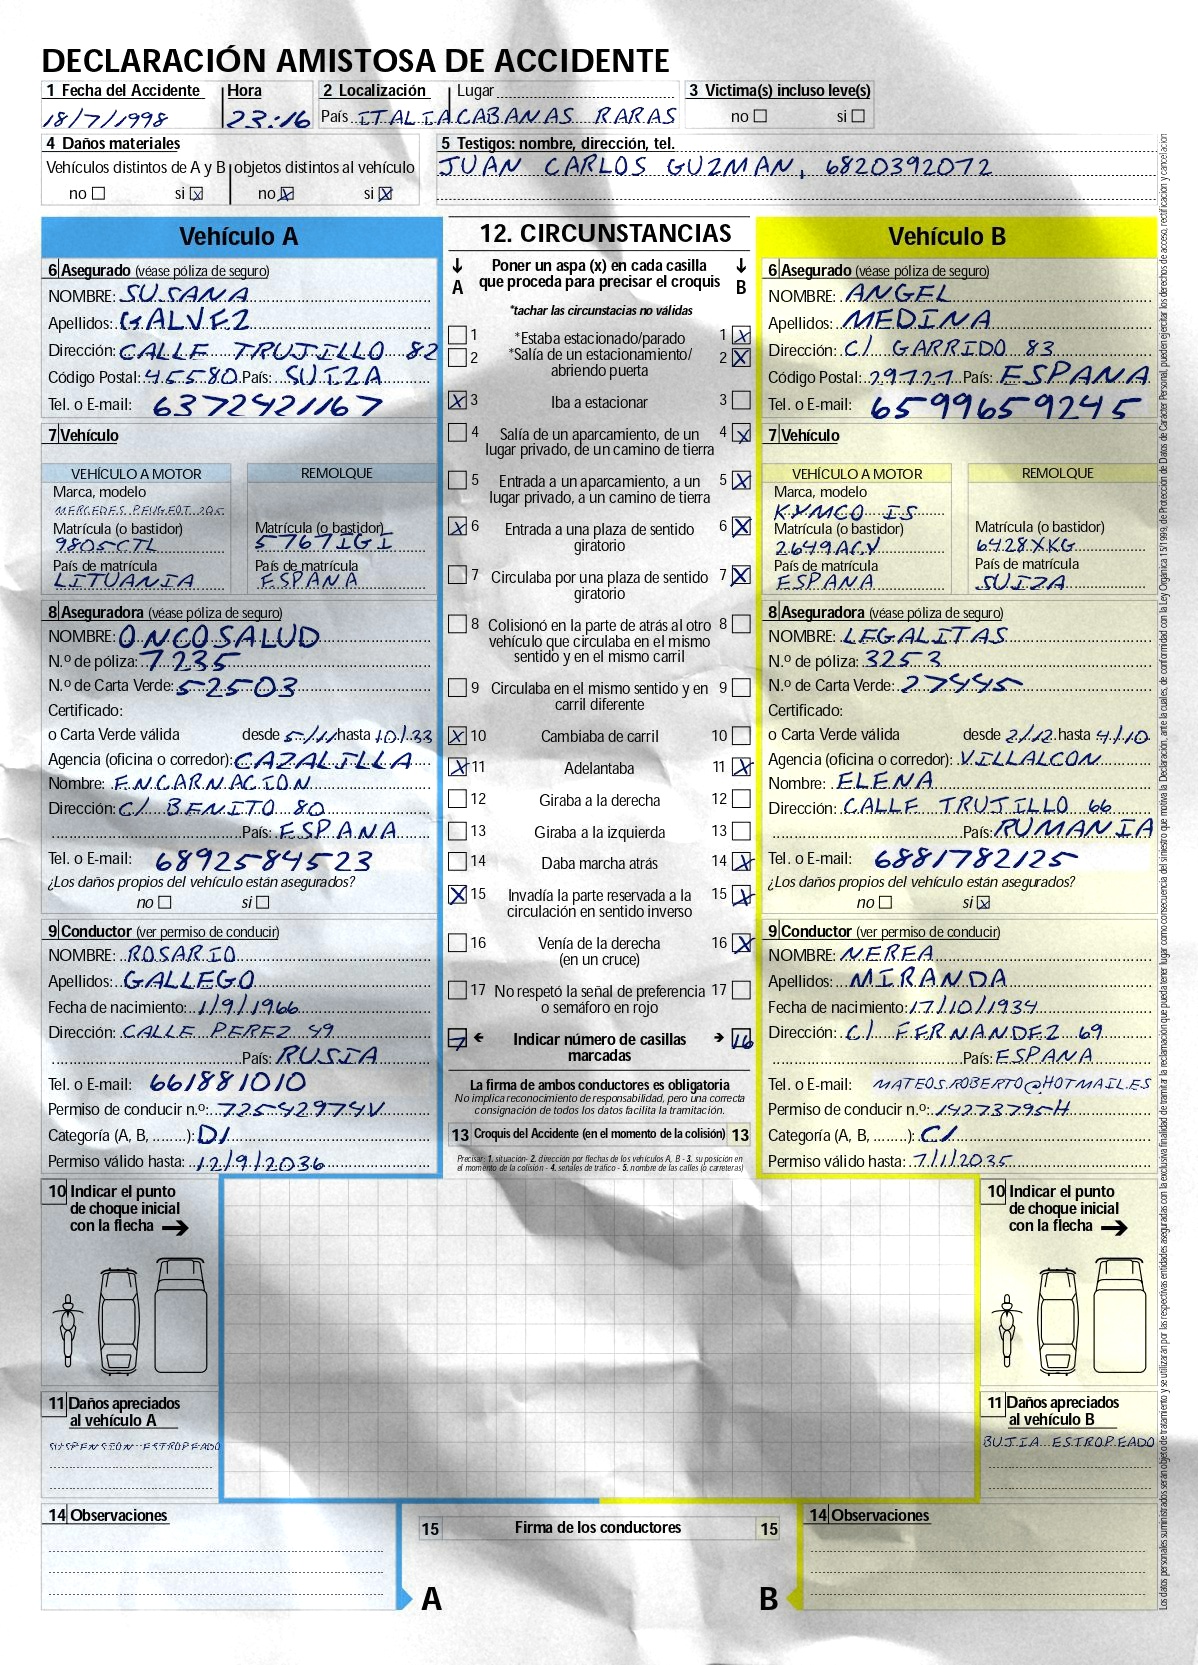 DECLARACIÓN AMISTOSA DE ACCIDENTE
1 Fecha del Accidente
18/7/1998
Hora
23:16
2 Localización
País ITALIA
Lugar
CABANAS RARAS
3 Victima(s) incluso leve(s)
no si
4 Daños materiales
Vehículos distintos de A y B
no si x
objetos distintos al vehículo
no x si x
5 Testigos: nombre, dirección, tel.
JUAN CARLOS GUZMAN, 6820392072
Vehículo A
6 Asegurado (véase póliza de seguro)
NOMBRE: SUSANA
Apellidos: GALVEZ
Dirección: CALLE TRUJILLO 82
Código Postal: 45580 País: SUIZA
Tel. o E-mail: 6372421167
7 Vehículo
VEHÍCULO A MOTOR
Marca, modelo
MERCEDES PEUGEOT 205
Matrícula (o bastidor)
9805CTL
País de matrícula
LITUANIA
REMOLQUE
Matrícula (o bastidor)
5767IGI
País de matrícula
ESPANA
8 Aseguradora (véase póliza de seguro)
NOMBRE: ONCOSALUD
N.º de póliza: 7235
N.º de Carta Verde: 52503
Certificado:
o Carta Verde válida desde 5/11 hasta 10/33
Agencia (oficina o corredor): CAZALILLA
Nombre: ENCARNACION
Dirección: C/ BENITO 80
País: ESPANA
Tel. o E-mail: 6892584523
¿Los daños propios del vehículo están asegurados?
no si
9 Conductor (ver permiso de conducir)
NOMBRE: ROSARIO
Apellidos: GALLEGO
Fecha de nacimiento: 1/9/1966
Dirección: CALLE PEREZ 49
País: RUSIA
Tel. o E-mail: 661881010
Permiso de conducir n.º: 72542974V
Categoría (A, B, ........): D1
Permiso válido hasta: 12/9/2036
12. CIRCUNSTANCIAS
A B
Poner un aspa (x) en cada casilla
que proceda para precisar el croquis
*tachar las circunstacias no válidas
1 *Estaba estacionado/parado 1 x
2 *Salía de un estacionamiento/ 2 x
abriendo puerta
x 3 Iba a estacionar 3
4 Salía de un aparcamiento, de un 4 x
lugar privado, de un camino de tierra
5 Entrada a un aparcamiento, a un 5 x
lugar privado, a un camino de tierra
x 6 Entrada a una plaza de sentido 6 x
giratorio
7 Circulaba por una plaza de sentido 7 x
giratorio
8 Colisionó en la parte de atrás al otro 8
vehículo que circulaba en el mismo
sentido y en el mismo carril
9 Circulaba en el mismo sentido y en 9
carril diferente
x 10 Cambiaba de carril 10
x 11 Adelantaba 11 x
12 Giraba a la derecha 12
13 Giraba a la izquierda 13
14 Daba marcha atrás 14 x
x 15 Invadía la parte reservada a la 15 x
circulación en sentido inverso
16 Venía de la derecha 16 x
(en un cruce)
17 No respetó la señal de preferencia 17
o semáforo en rojo
7 Indicar número de casillas 16
marcadas
La firma de ambos conductores es obligatoria
No implica reconocimiento de responsabilidad, pero una correcta
consignación de todos los datos facilita la tramitación.
13 Croquis del Accidente (en el momento de la colisión) 13
Precisar: 1. situación- 2. dirección por flechas de los vehículos A, B - 3. su posición en
el momento de la colisión - 4. señales de tráfico - 5. nombre de las calles (o carreteras)
Vehículo B
6 Asegurado (véase póliza de seguro)
NOMBRE: ANGEL
Apellidos: MEDINA
Dirección: C/ GARRIDO 83
Código Postal: 29727 País: ESPANA
Tel. o E-mail: 6599659245
7 Vehículo
VEHÍCULO A MOTOR
Marca, modelo
KYMCO IS
Matrícula (o bastidor)
2649ACV
País de matrícula
ESPANA
REMOLQUE
Matrícula (o bastidor)
6428XKG
País de matrícula
SUIZA
8 Aseguradora (véase póliza de seguro)
NOMBRE: LEGALITAS
N.º de póliza: 3253
N.º de Carta Verde: 27445
Certificado:
o Carta Verde válida desde 2/12 hasta 4/10
Agencia (oficina o corredor): VILLALCON
Nombre: ELENA
Dirección: CALLE TRUJILLO 66
País: RUMANIA
Tel. o E-mail: 6881782125
¿Los daños propios del vehículo están asegurados?
no si x
9 Conductor (ver permiso de conducir)
NOMBRE: NEREA
Apellidos: MIRANDA
Fecha de nacimiento: 17/10/1934
Dirección: C/ FERNANDEZ 69
País: ESPANA
Tel. o E-mail: MATEOS.ROBERTO@HOTMAIL.ES
Permiso de conducir n.º: 14273795H
Categoría (A, B, ........): C1
Permiso válido hasta: 7/1/2035
10 Indicar el punto
de choque inicial
con la flecha
11 Daños apreciados
al vehículo A
SUSPENSION ESTROPEADO
10 Indicar el punto
de choque inicial
con la flecha
11 Daños apreciados
al vehículo B
BUJIA ESTROPEADO
14 Observaciones
15 Firma de los conductores 15
A B
14 Observaciones